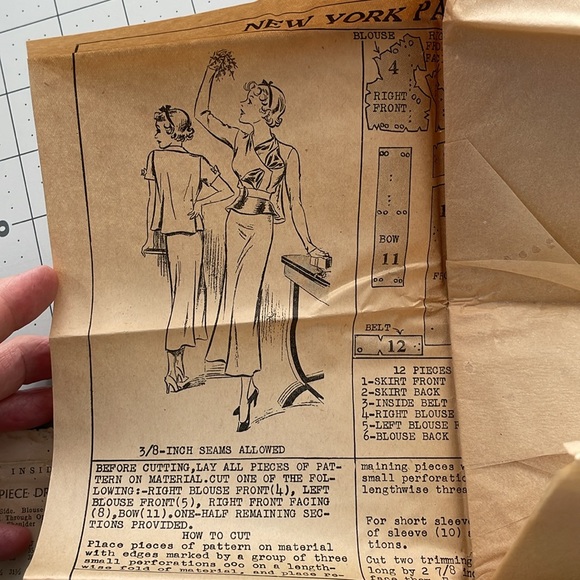 NEW YORK PA
BLOUSE
4
RIGHT
FRONT
BOW
11
BELT
12
3/8-INCH SEAMS ALLOWED
12 PIECES
1-SKIRT FRONT
2-SKIRT BACK
3-INSIDE BELT
4-RIGHT BLOUSE
5-LEFT BLOUSE F
6-BLOUSE BACK
BEFORE CUTTING,LAY ALL PIECES OF PAT-
TERN ON MATERIAL.CUT ONE OF THE FOL-
LOWING:-RIGHT BLOUSE FRONT(4), LEFT
BLOUSE FRONT(5), RIGHT FRONT FACING
(8),BOW(11).ONE-HALF REMAINING SEC-
TIONS PROVIDED.
HOW TO CUT
Place pieces of pattern on material
with edges marked by a group of three
small perforations oOo on a length-
wise fold of material, and place re-
maining pieces w
small perforatio
lengthwise threa
For short sleeve
of sleeve (10) a
tions.
Cut two trimming
long by 2 7/8 i
INSID
PIECE DR